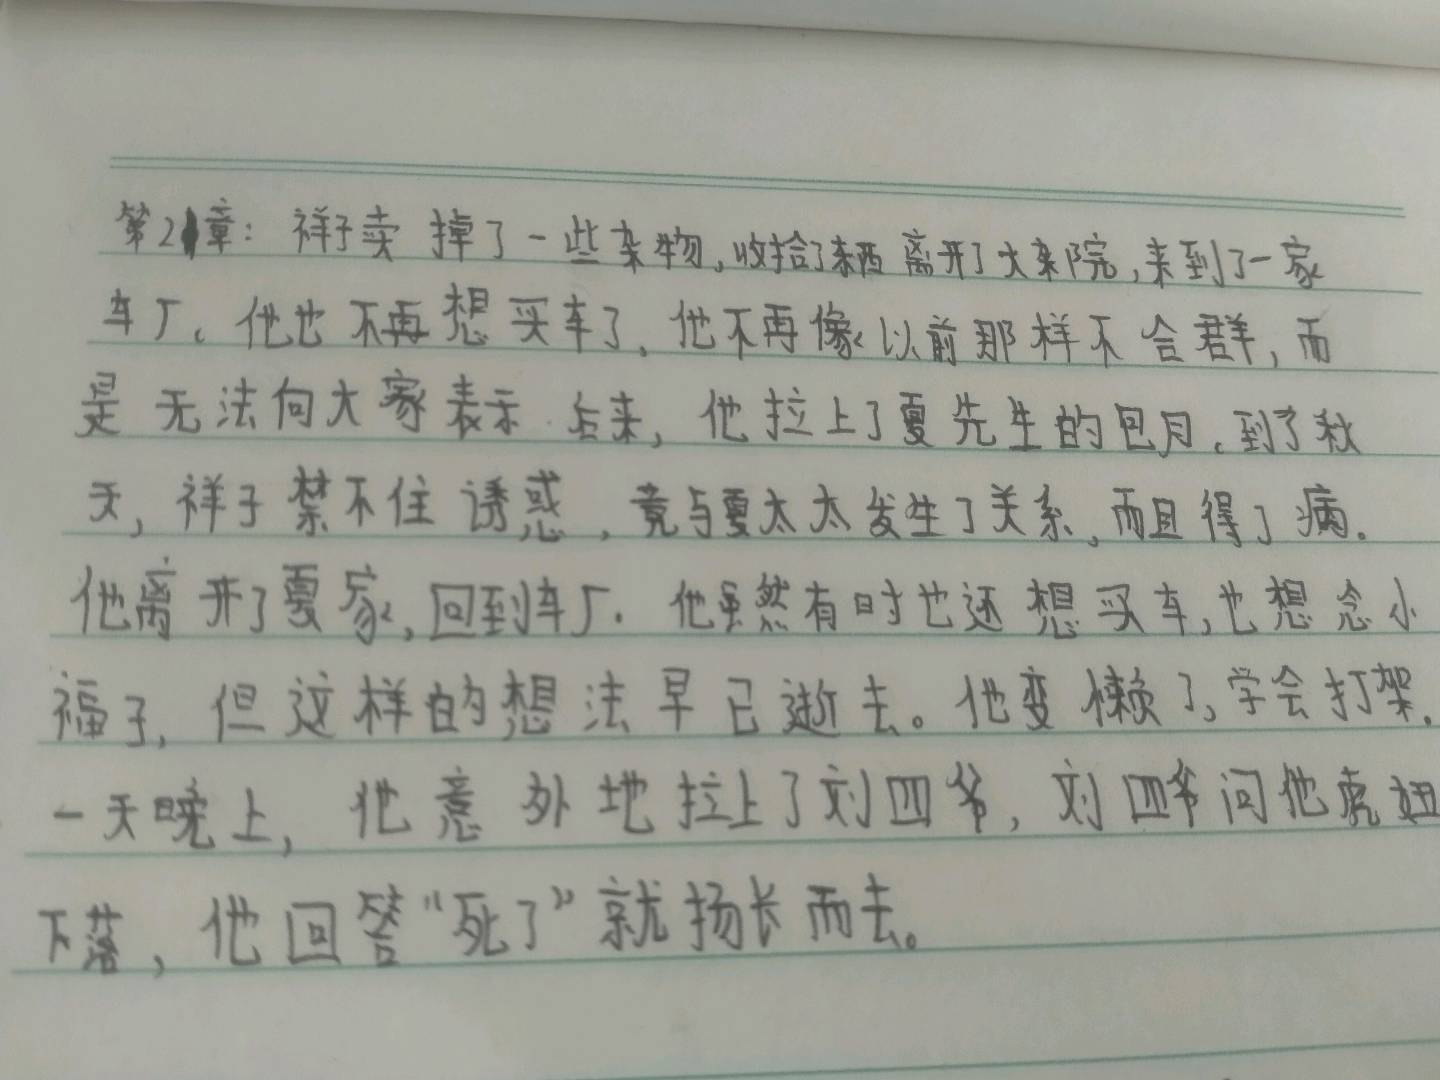 第21章：祥子卖掉了一些杂物，收拾了东西离开了大杂院，来到了一家
车厂。他也不再想买车了。他不再像以前那样不合群，而
是无法向大家表示.后来，他拉上了夏先生的包月。到了秋
天，祥子禁不住诱惑，竟与夏太太发生了关系，而且得了病.
他离开了夏家，回到车厂.他虽然有时也还想买车，也想念小
福子，但这样的想法早已逝去。他变懒了，学会打架.
一天晚上，他意外地拉上了刘四爷，刘四爷问他虎妞
下落，他回答“死了”就扬长而去。